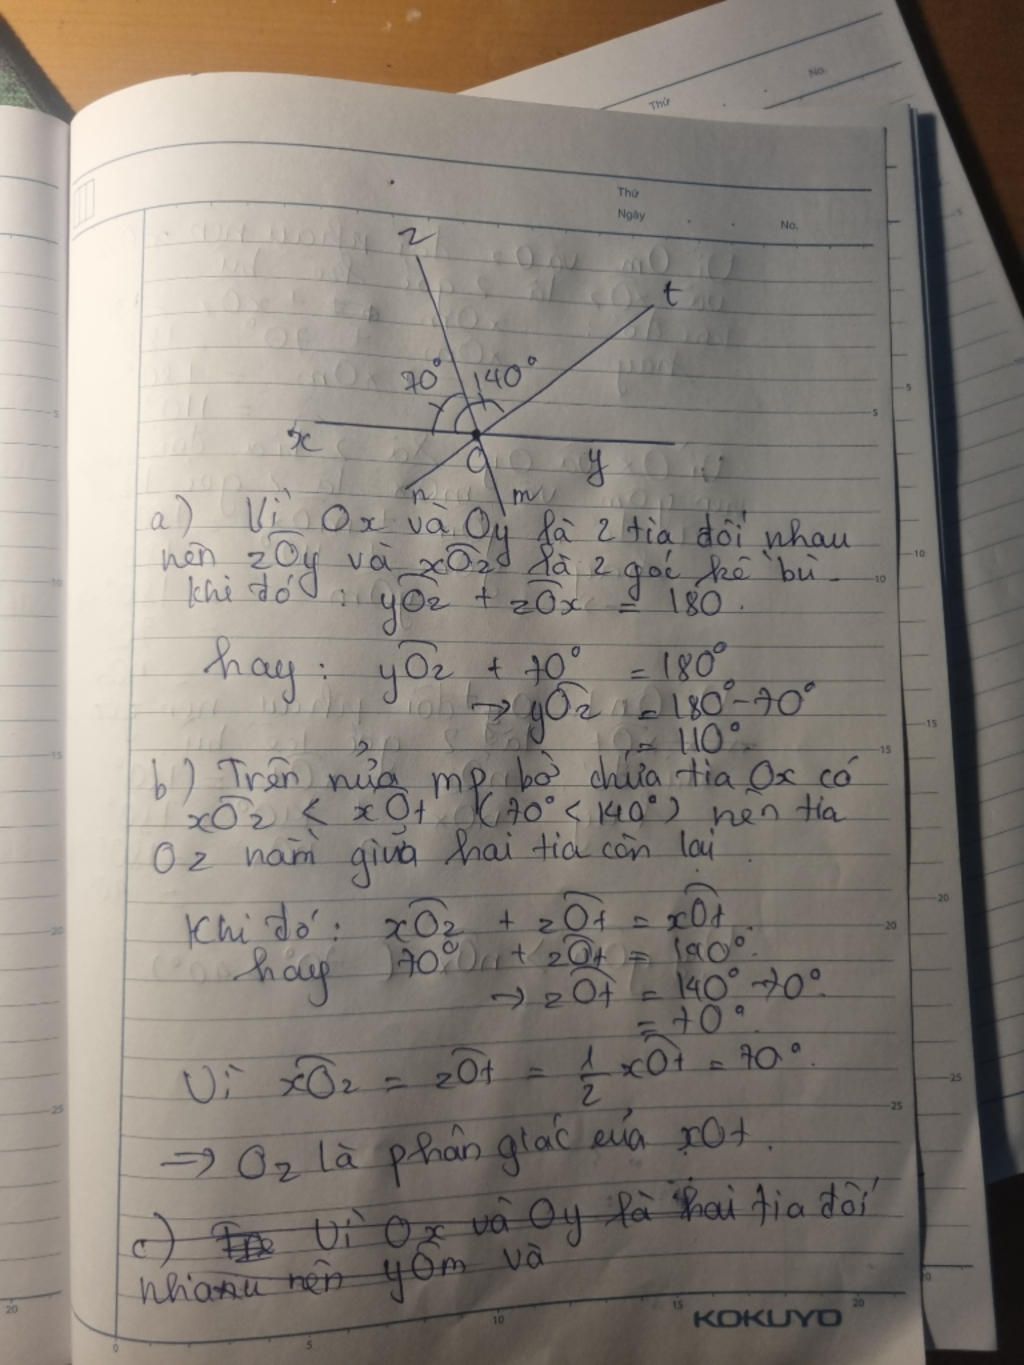 Thứ
No.
Thứ
Ngày
No.
z
t
70° 140°
x
O
y
n m
a) Vì Ox và Oy là 2 tia đối nhau
nên zOy và xOz là 2 góc kề bù.
Khi đó : yOz + zOx = 180.
hay : yOz + 70° = 180°
→ yOz = 180° - 70°
= 110°
b) Trên nửa mp bờ chứa tia Ox có
xOz < xOt (70° < 140°) nên tia
Oz nằm giữa hai tia còn lại.
Khi đó : xOz + zOt = xOt.
hay 70° + zOt = 140°.
→ zOt = 140° - 70°.
= 70°.
Vì xOz = zOt = 1/2 xOt = 70°.
=> Oz là phân giác của xOt.
c) Vì Ox và Oy là hai tia đối
nhau nên yOm và
KOKUYO